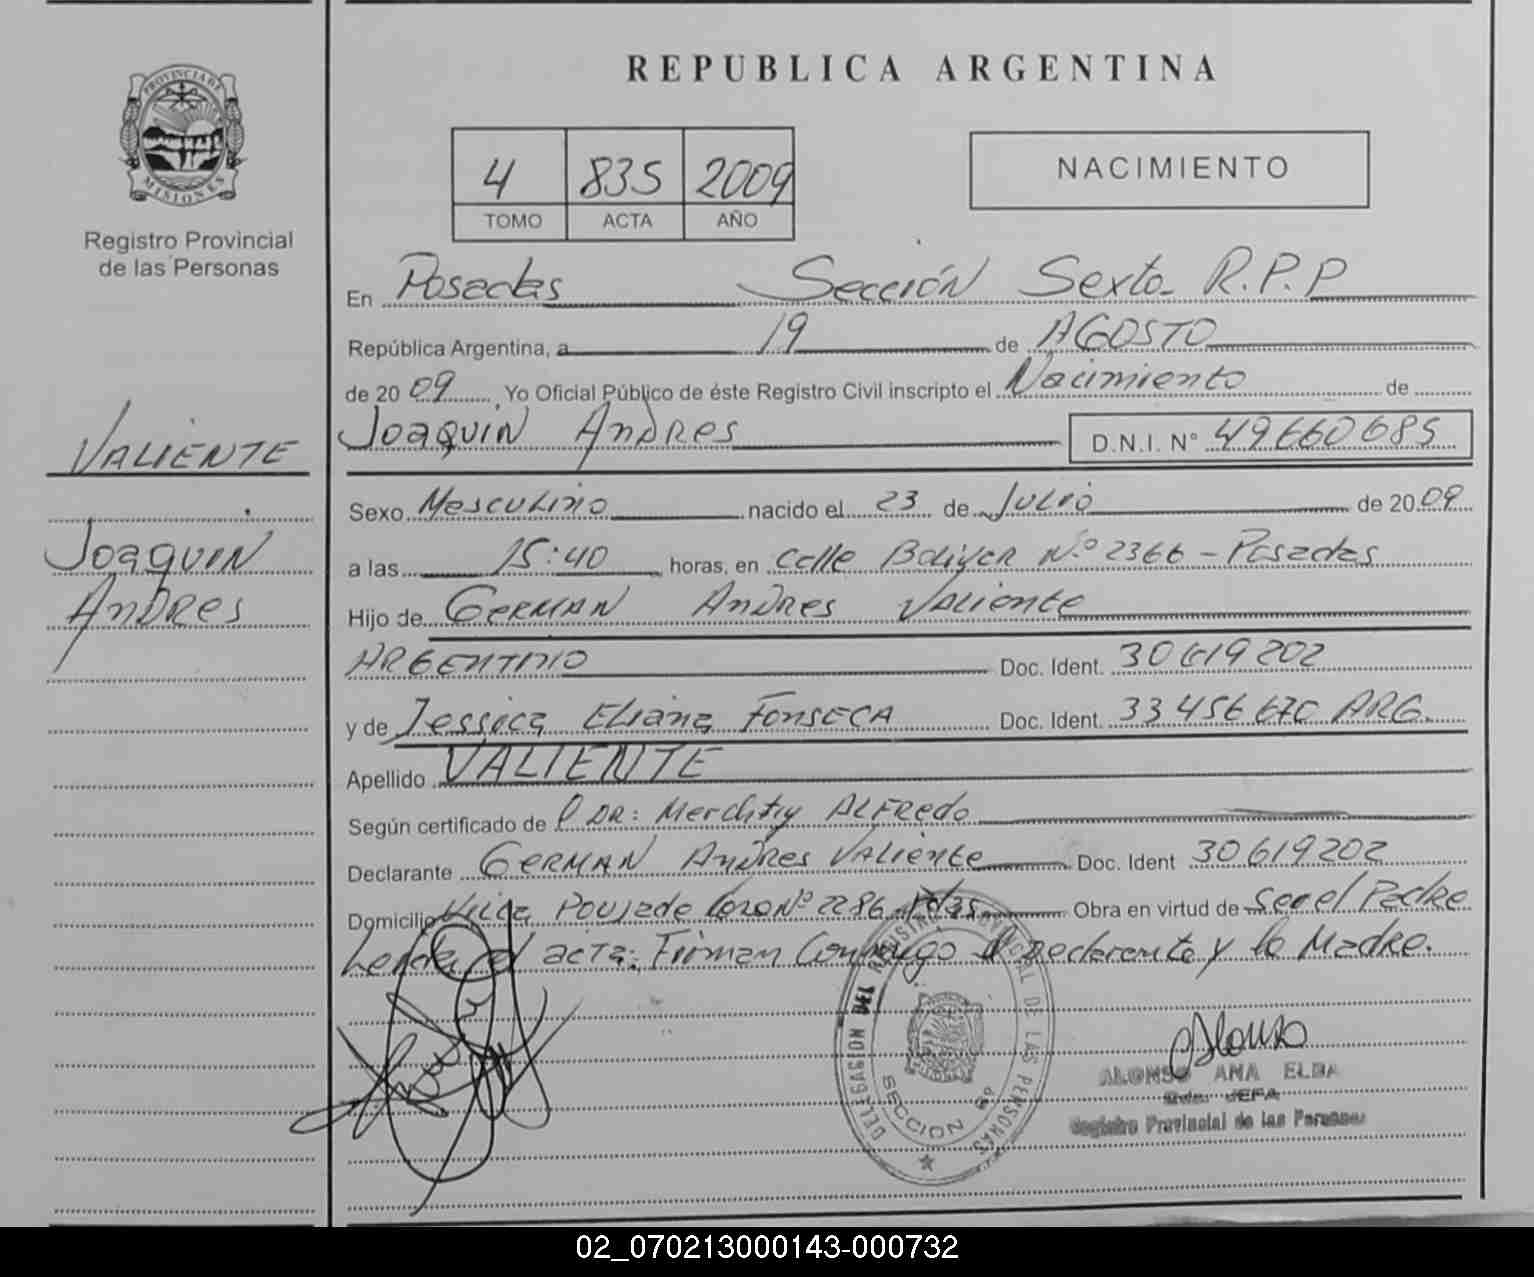 PROVINCIA DE
MISIONES
Registro Provincial
de las Personas
VALIENTE
JOAQUIN
ANDRES
REPUBLICA ARGENTINA
4 835 2009
TOMO ACTA AÑO
NACIMIENTO
En Posadas Sección Sexta R.P.P
República Argentina, a 19 de AGOSTO
de 2009 Yo Oficial Público de éste Registro Civil inscripto el Nacimiento de
JOAQUIN ANDRES D.N.I. N° 49660685
Sexo Masculino nacido el 23 de Julio de 2009
a las 15:40 horas, en calle Bolivar N.° 2366 - Posadas
Hijo de GERMAN ANDRES VALIENTE
ARGENTINO Doc. Ident. 30619202
y de Jessica Eliana FONSECA Doc. Ident. 33456670 ARG.
Apellido VALIENTE
Según certificado de DR: ALFREDO
Declarante GERMAN ANDRES VALIENTE Doc. Ident 30619202
Domicilio N° 2286 Pdas Obra en virtud de Ser el Padre
Leida el acta: Firman Conmigo el Declarante y la Madre.
DELEGACION DEL REGISTRO PROVINCIAL DE LAS PERSONAS
SECCION 6°
Alonso
ALONSO ANA ELBA
JEFA
Registro Provincial de las Personas
02_070213000143-000732